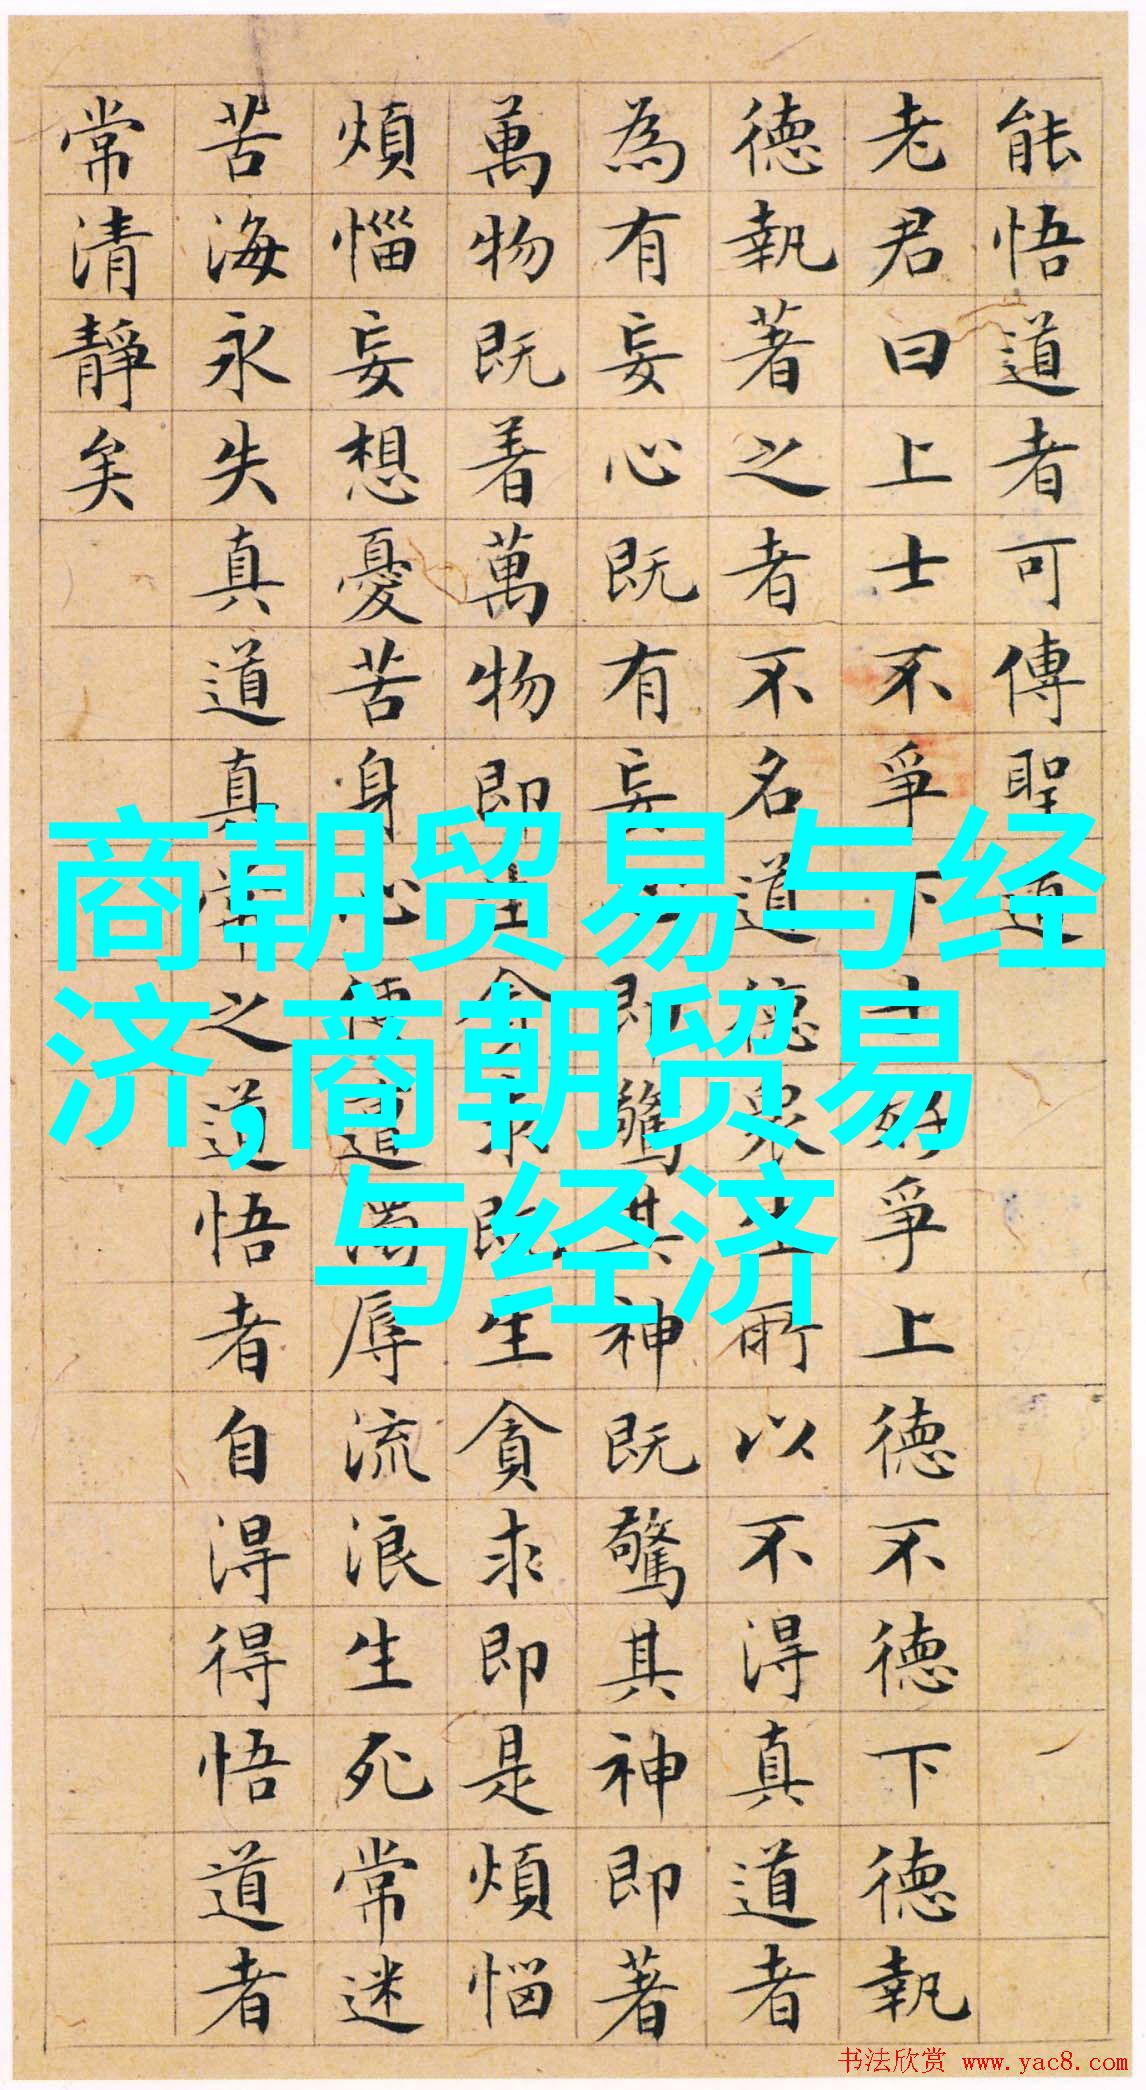 能悟道者可傳聖道
老君曰上士不爭下士好爭上德不德下德執
德執著之者不名道德衆生所以不得真道者
為有妄心既有妄心即驚其神既驚其神即著
萬物既着萬物即生貪求既生貪求即是煩惱
煩惱妄想憂苦身心便遭濁辱流浪生死常迷
苦海永失真道真常之道悟者自得得悟道者
常清靜矣
商朝贸易与经
济,商朝贸易
与经济
书法欣赏 www.yac8.com